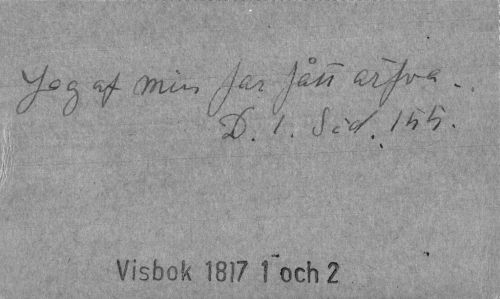 Jag af min far fått ärfva..
D. 1. Sid. 155.
Visbok 1817 1 och 2